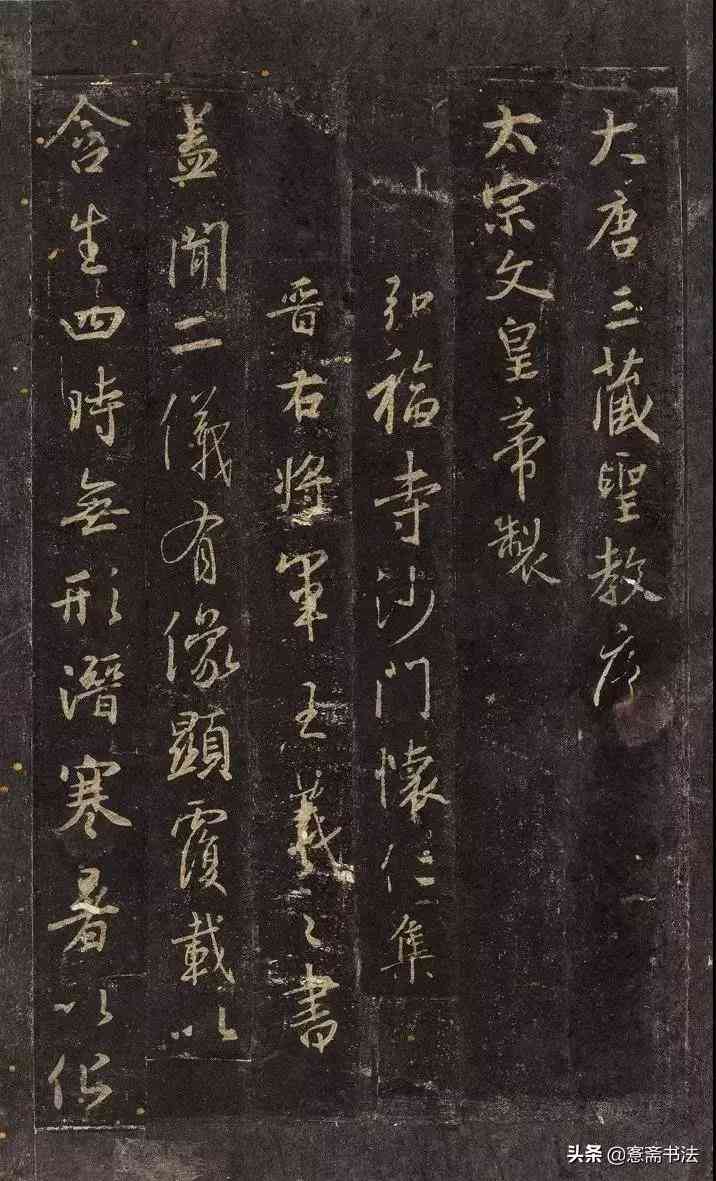 大唐三藏聖教序
太宗文皇帝製
弘福寺沙門懷仁集
晉右將軍王羲之書
蓋聞二儀有像顯覆載以
含生四時無形潛寒暑以化
头条 @窓斋书法